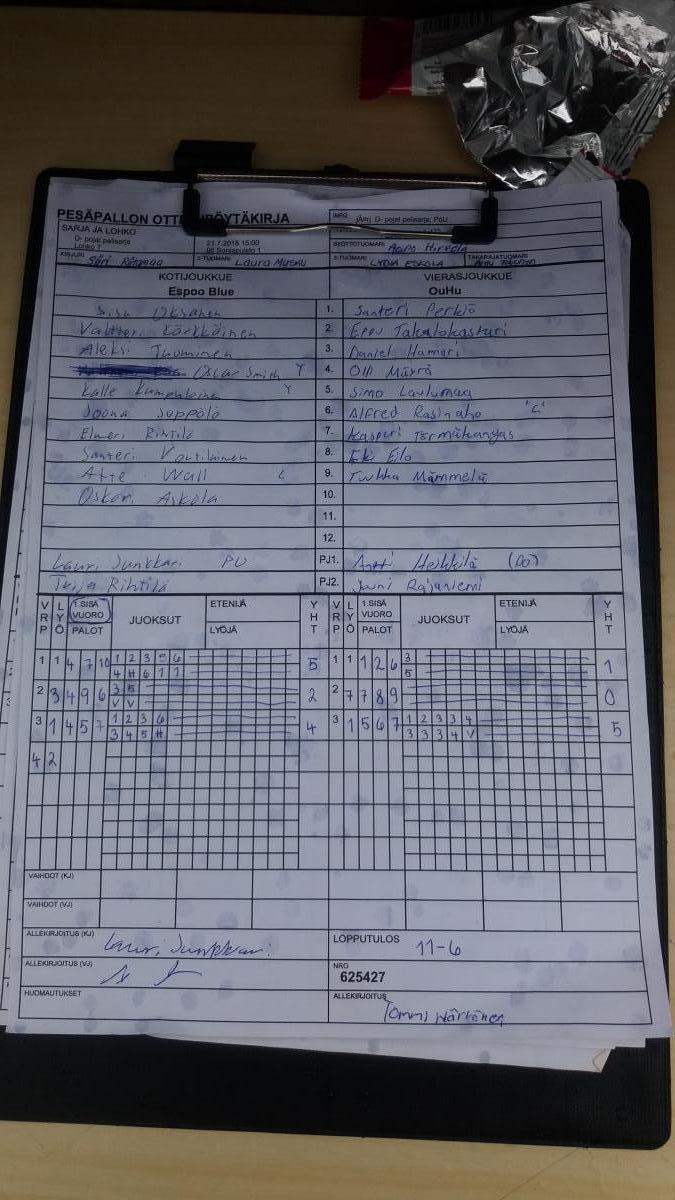 PESÄPALLON OTTE PÖYTÄKIRJA
INRO jÄrrj. D- pojat pelisarja: PoU
SARJA JA LOHKO
D- pojat pelisarja
Lohko 7
21.7.2018 15:00
SYÖTTÖTUOMARI Aapo Hirvola
KIRJURI Siiri 2-TUOMARI Laura Mursu 3-TUOMARI LYDIA ESKOLA TAKARAJATUOMARI
KOTIJOUKKUE VIERASJOUKKUE
Espoo Blue OuHu
Sisu Oksanen 1. Santeri Perkiö
Valtteri Kärkkäinen 2. Eppu Takalokasturi
Aleksi Tuominen 3. Daniel Hamari
Oscar Smith Y 4. Olli Mäyrä
Kalle Kumpulainen Y 5. Simo Laulumaa
Joona Soppölä 6. Alfred Rasinaho "L"
Elmeri Rihtilä 7. Kasperi Tormäkangas
Santeri Voutilainen 8. Eki Eilo
Atte Wall L 9. Tuukka Mämmelä
Oskari Askola 10.
11.
12.
Lauri Junkkari PU PJ1. Antti Heikkilä (PO)
Teija Rihtilä PJ2. Jouni Rajaniemi
VRP LYÖ 1.SISÄ VUORO PALOT JUOKSUT ETENIJÄ LYÖJÄ YHT VRP LYÖ 1.SISÄ VUORO PALOT JUOKSUT ETENIJÄ LYÖJÄ YHT
1 1 4 7 10 1 2 3 5 6 5 1 1 1 2 6 3 1
4 # 6 7 7 5
2 3 4 9 6 3 5 2 2 7 7 8 9 0
V V
3 1 4 5 7 1 2 3 6 4 3 1 5 6 7 1 2 3 3 4 5
3 4 5 # 3 3 3 4 V
4 2
VAIHDOT (KJ)
VAIHDOT (VJ)
ALLEKIRJOITUS (KJ) Lauri Junkkari LOPPUTULOS 11-6
ALLEKIRJOITUS (VJ) NRO
625427
HUOMAUTUKSET ALLEKIRJOITUS
Tommi Härkönen